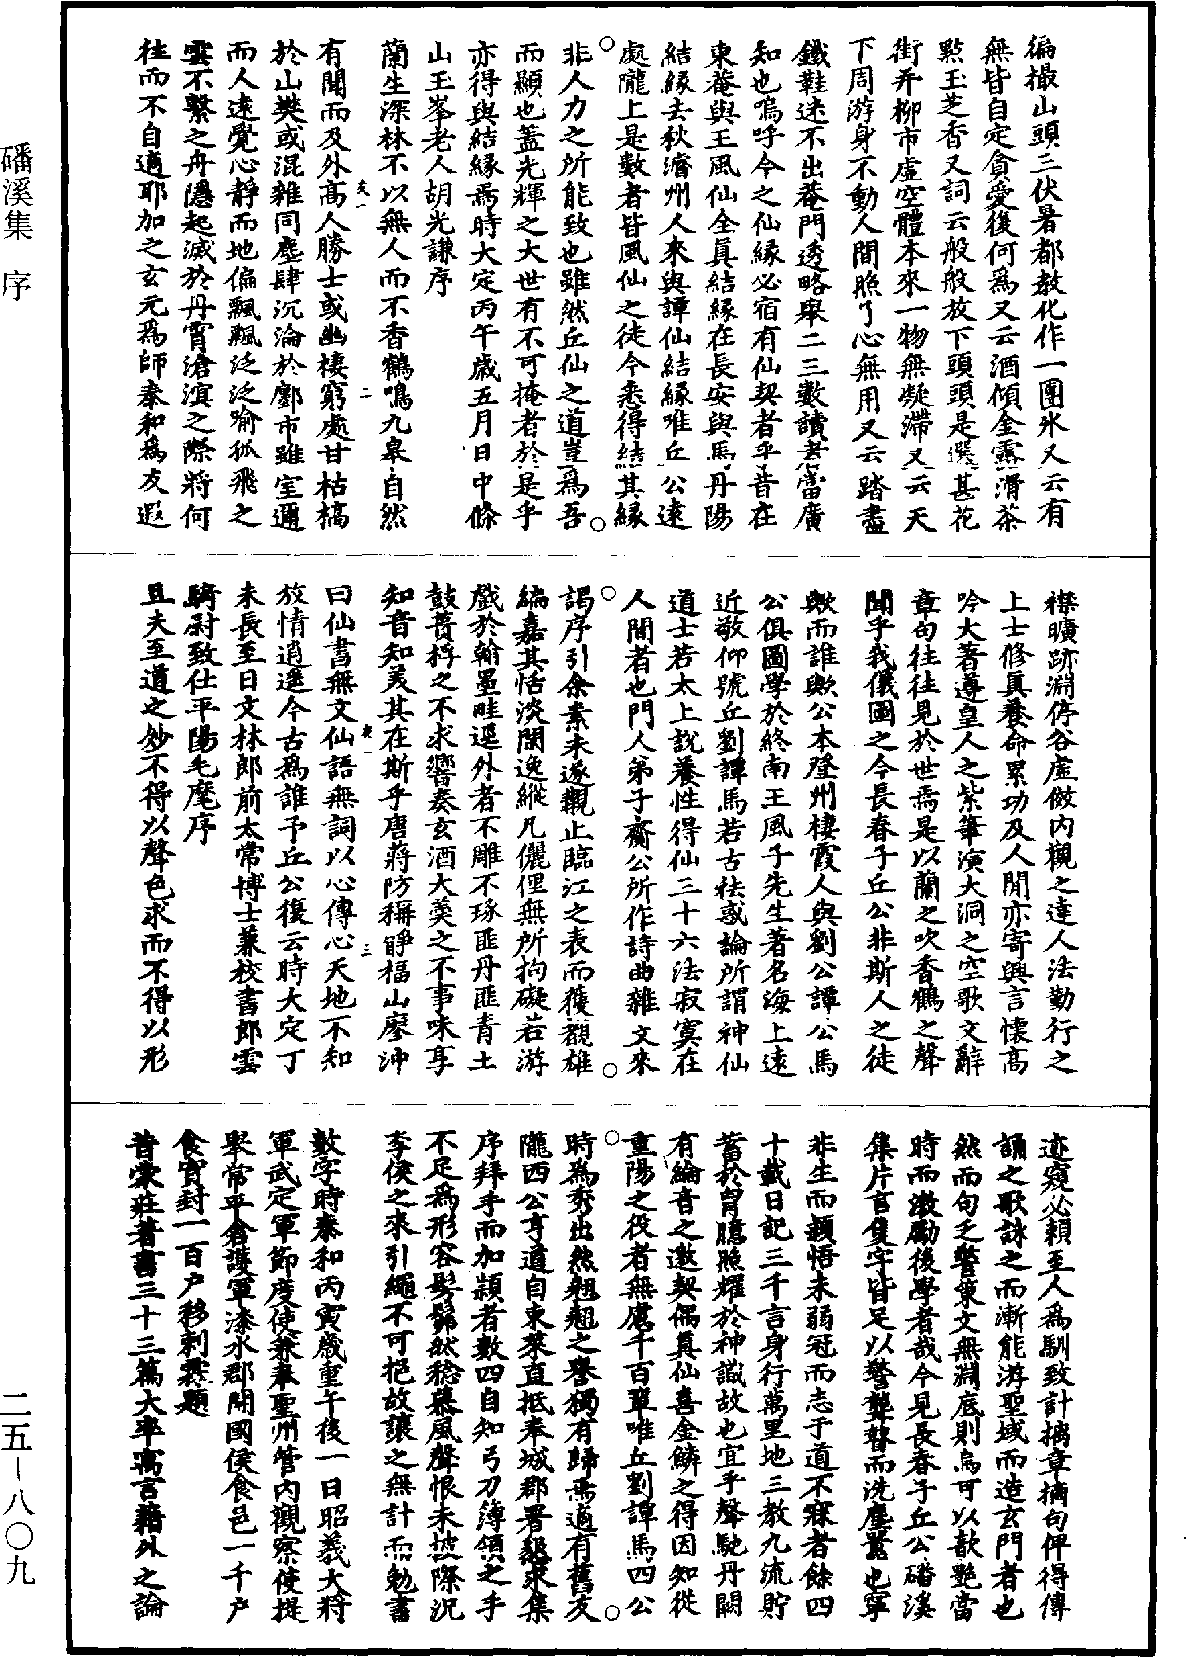 磻溪集　序
徧撮山頭三伏暑都教化作一團氷又云有
無皆自定貪愛後何爲又云酒傾金露滑茶
點玉芝香又詞云般般放下頭頭是選甚花
街并柳市虛空體本來一物無凝滯又云天
下周游身不動人間照了心無用又云踏盡
鐵鞋迷不出菴門透略舉二三數讀者當廣
知也嗚呼今之仙緣必宿有仙契者乎昔在
東菴與王風仙全真結緣在長安與馬丹陽
結緣去秋濟州人來與譚仙結緣唯丘公遠
處隴上是數者皆風仙之徒今悉得結其緣
非人力之所能致也雖然丘仙之道豈爲吾
而顯也蓋光輝之大世有不可掩者於是乎
亦得與結緣焉時大定丙午歲五月日中條
山玉峯老人胡光謙序
蘭生深林不以無人而不香鶴鳴九皋自然
有聞而及外高人勝士或幽棲窮處甘枯槁
於山樊或混雜同塵肆沉淪於鄽市雖室邇
而人遠覺心靜而地偏飄飄泛泛喻孤飛之
雲不繫之舟隱起滅於丹霄滄溟之際將何
往而不自適耶加之玄元爲師泰和爲友遐
襟曠跡淵停谷虛儆內觀之達人法勤行之
上士修真養命累功及人閒亦寄興言懷高
吟大著遵皇人之紫筆演大洞之空歌文辭
章句往往見於世焉是以蘭之吹香鶴之聲
聞乎我儀圖之今長春子丘公非斯人之徒
歟而誰歟公本登州棲霞人與劉公譚公馬
公俱圖學於終南王風子先生著名海上遠
近敬仰號丘劉譚馬若古祛惑論所謂神仙
道士若太上說養性得仙三十六法寂寞在
人間者也門人弟子齎公所作詩曲雜文來
謁序引余素未遂觀止臨江之表而獲覩雄
編嘉其恬淡閑逸縱凡儷俚無所拘礙若游
戲於翰墨畦逕外者不雕不琢匪丹匪青土
鼓蕢桴之不求響奏玄酒大羹之不事味享
知音知美其在斯乎唐蔣防稱睜福山廖沖
曰仙書無文仙語無詞以心傳心天地不知
放情逍遙今古爲誰予丘公復云時大定丁
未長至日文林郎前太常博士兼校書郎雲
騎尉致仕平陽毛麾序
且夫至道之妙不得以聲色求而不得以形
迹窺必賴至人爲馴致計摘章摘句俾得傳
誦之歌詠之而漸能游聖域而造玄門者也
然而句乏警策文無淵底則烏可以歆艷當
時而激勵後學者哉今見長春子丘公磻溪
集片言隻字皆足以警聾瞽而洗塵囂也寧
非生而穎悟未弱冠而志于道不寐者餘四
十載日記三千言身行萬里地三教九流貯
蓄於胷臆照耀於神識故也宜乎聲馳丹闕
有綸音之邀契偶真仙喜金鱗之得因知從
重陽之役者無慮千百輩唯丘劉譚馬四公
時爲秀出然翹翹之譽獨有歸焉適有舊友
隴西公亨道自東萊直抵奉城郡署懇求集
序拜手而加顙者數四自知弓刀薄領之手
不足爲形容髣髴然稔慕風聲恨未披際況
李侯之來引繩不可挹故讓之無計而勉書
數字時泰和丙寅歲重午後一日昭義大將
軍武定軍節度使兼奉聖州管內觀察使提
舉常平倉護軍漆水郡開國侯食邑一千戶
食實封一百戶移剌霖題
昔蒙莊著書三十三篇大率寓言藉外之論
二五—八〇九